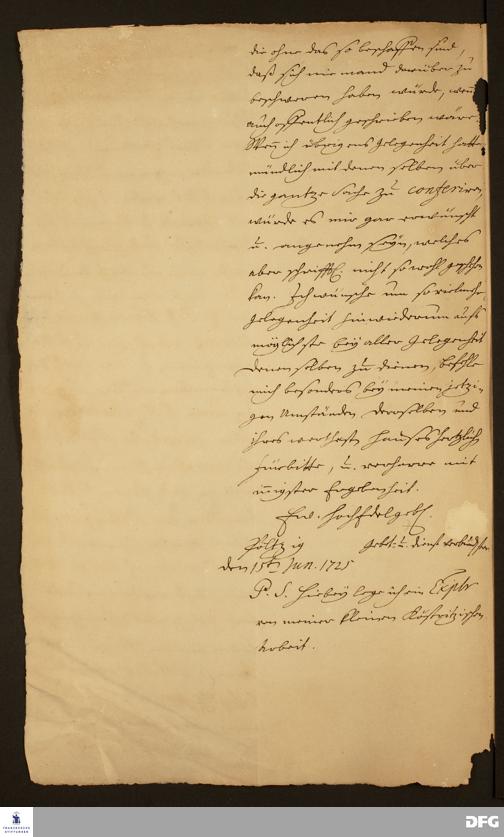 die ohne das so beschaffen sind,
daß sich niemand darüber zu
beschweren haben würde, wenn
auch offentlich geschrieben wäre.
Wenn ich übrigens gelegenheit hatte
mündlich mit denenselben über
die gantze Sache zu conferiren,
würde es mir gar erwünscht
u. angenehm seyn, welches
aber schrifftl. nicht so wohl geschehen
kan. Ich wünsche um so vielmehr
gelegenheit hinwiederum aufs
möglichste bey aller gelegenheit
Denenselben zu dienen, befehle
mich besonders bey meinen jetzi-
gen Umständen Deroselben und
ihres werthesten Hauses hertzlichen
Fürbitte, u. verharre mit
innigster Ergebenheit.
Ew. HochEdelgeb.
Pöltzig Gebet- u. dienstverbundenster
den 15ten Jun. 1725
P. S. Hiebey lege ich ein Explr
von meiner kleinen Köstritzischen
Arbeit.
FRANCKESCHE
STIFTUNGEN
DFG